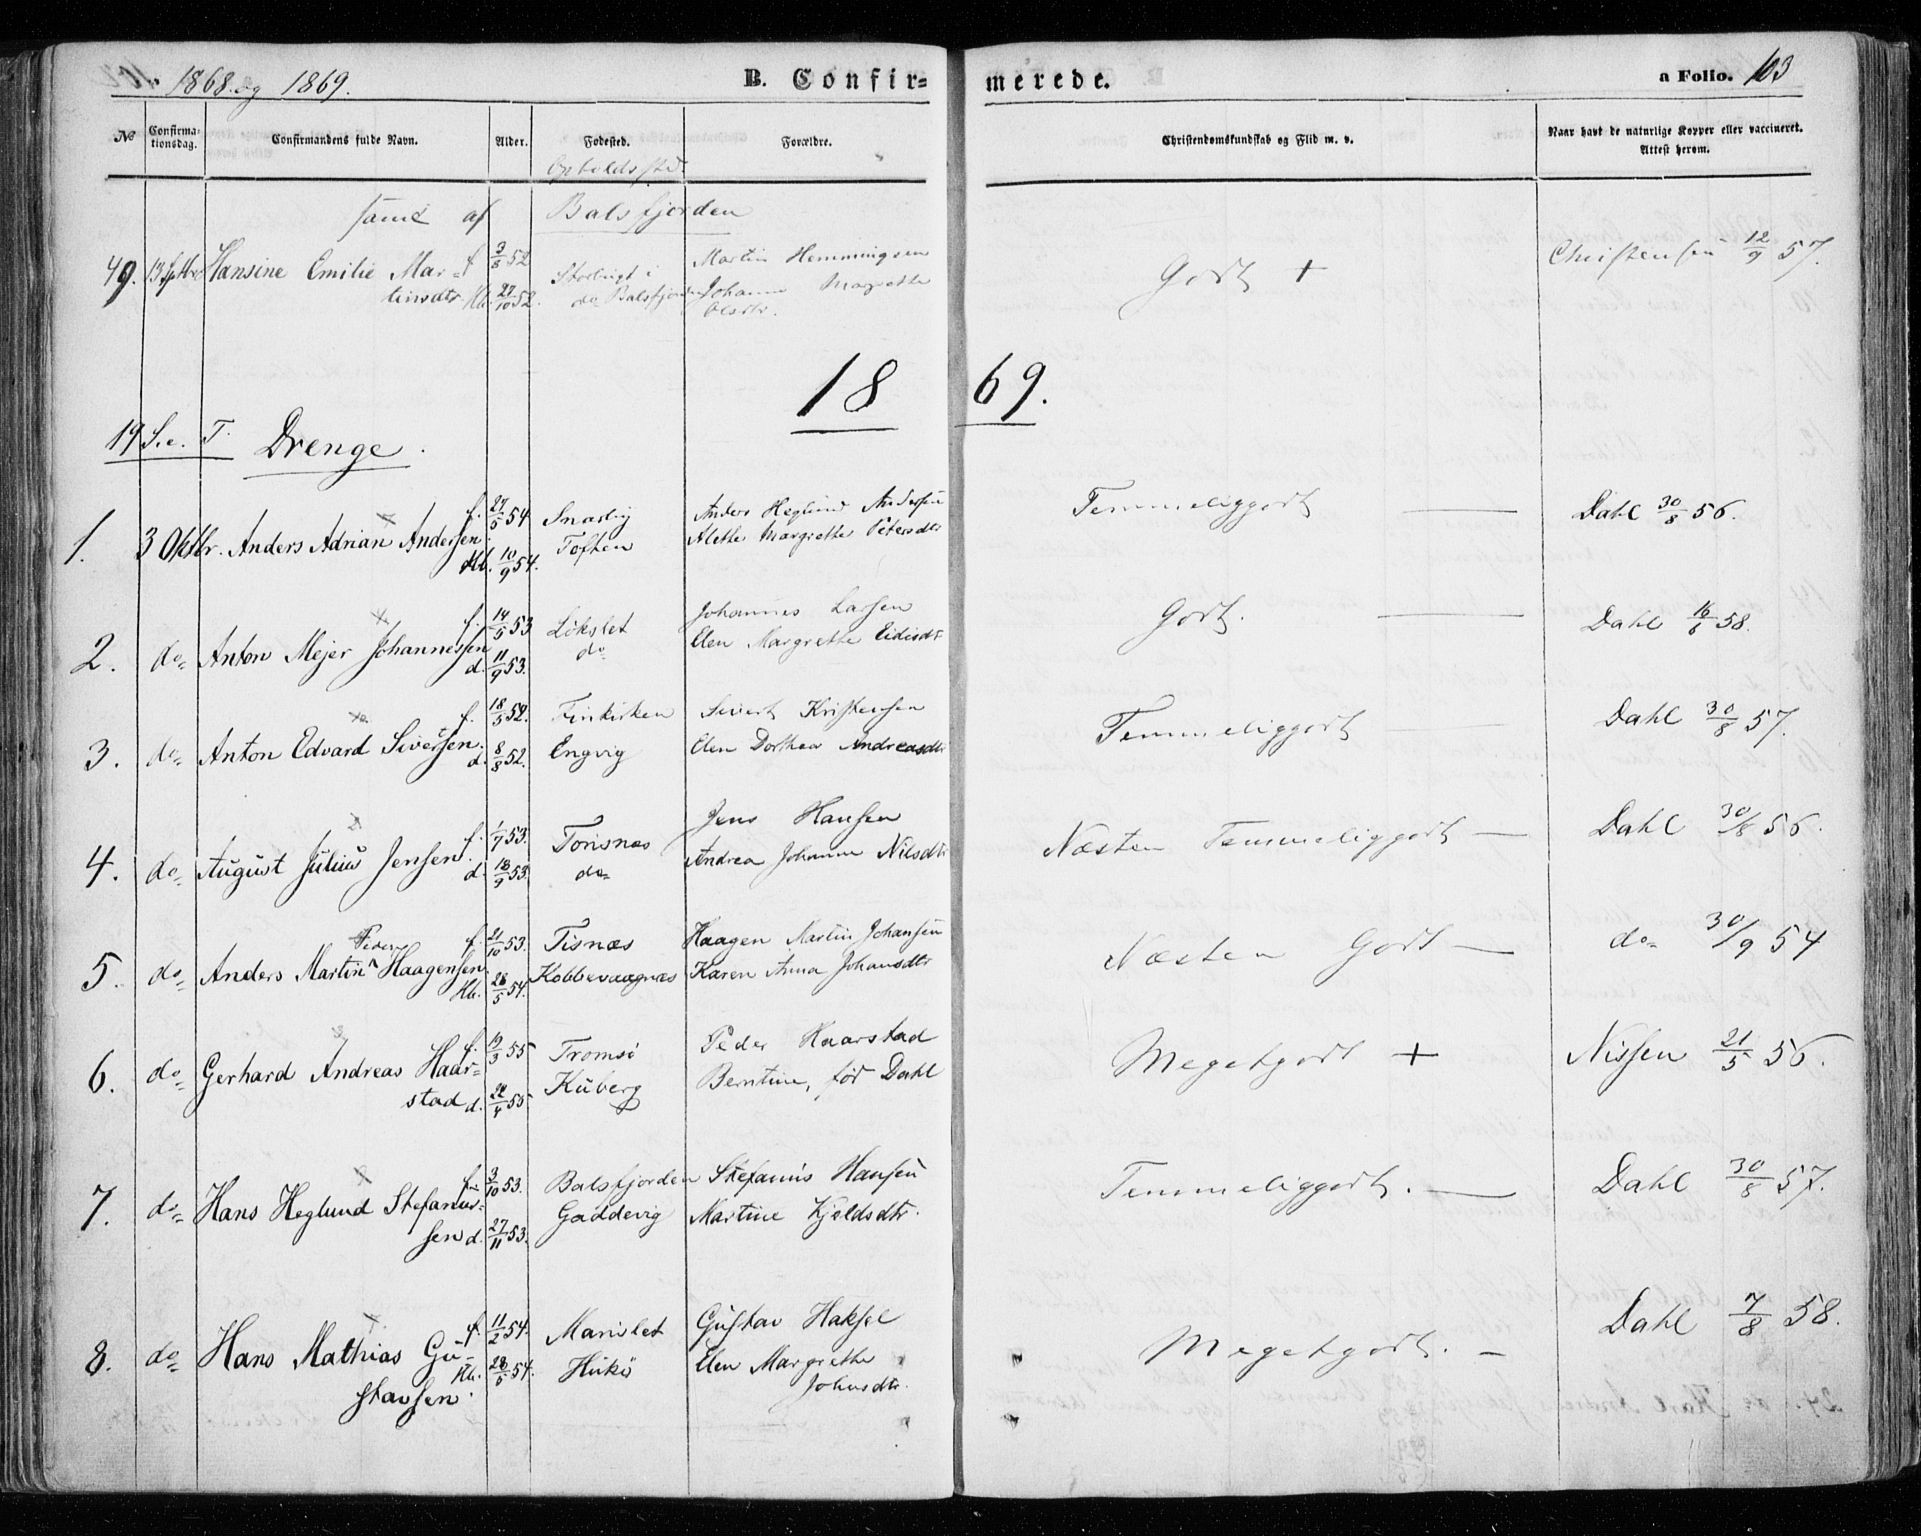 1868 og 1869.
B. Confirmerede.
a Folio. 103
No
Confirmationsdag.
Confirmandens fulde Navn.
Alder.
Fødested.
Opholdssted.
Forældre.
Christendomskundskab og Flid m. v.
Naar havt de naturlige Kopper eller vaccineret. Attest herom.
samt af Balsfjorden
49. 13 Sptbr Hansine Emilie Mar=
tinsdtr. f. 3/8 52 Hb. 27/10 52.
i do Balsfjorden
Martin Hemmingsen
Johanna Magrethe
Olsdtr.
Godt +
Christensen 12/9 57.
1869.
19 S. e. T. Drenge.
1. 3 Oktbr. Anders Adrian Andersen f. 27/5 54 Hb. 10/9 54.
Snarby
Toften
Anders Heglund Andersen
Alethe Margrethe Petersdtr
Temmeliggodt
Dahl 30/8 56.
2. do Anton Mejer Johannessen f. 14/5 53 d. 11/9 53.
Løkslet
do
Johannes Larsen
Elen Margrethe Eidisdtr
Godt.
Dahl 16/6 58.
3. do Anton Edvard Sivertsen. f. 18/5 52. d. 8/8 52.
Finkirken
Engvig
Sivert Kristensen
Elen Dorthea Andreasdtr
Temmeliggodt
Dahl 30/8 57.
4. do August Julius Jensen. f. 1/7 53. d. 18/9 53.
Tonsnæs
do
Jens Hansen
Andrea Johanna Nilsdtr
Næsten Temmeliggodt
Dahl 30/8 56.
5. do Anders Martin Peder Haagensen f. 21/10 53. Hb. 28/5 54.
Tisnæs
Kobbevaagnæs
Haagen Martin Johansen
Karen Anna Johansdtr
Næsten Godt
do 30/9 54
6. do Gerhard Andreas Haar=
stad f. 19/3 55 d. 22/4 55.
Tromsø
Kuberg
Peder Haarstad
Berntine, fød Dahl
Megetgodt +
Nissen 21/5 56.
7. do Hans Heglund Stefanus=
sen f. 3/10 53. d. 27/11 53.
Balsfjorden
Gaddevig
Stefanus Hansen
Martine Kjeldsdtr.
Temmeliggodt.
Dahl 30/8 57.
8. do Hans Mathias Gu=
stavsen. f. 11/2 54. Hb. 28/5 54.
Marislet
Gustav Haksel
Elen Margrethe
Johnsdtr.
Megetgodt.
Dahl 7/8 58.